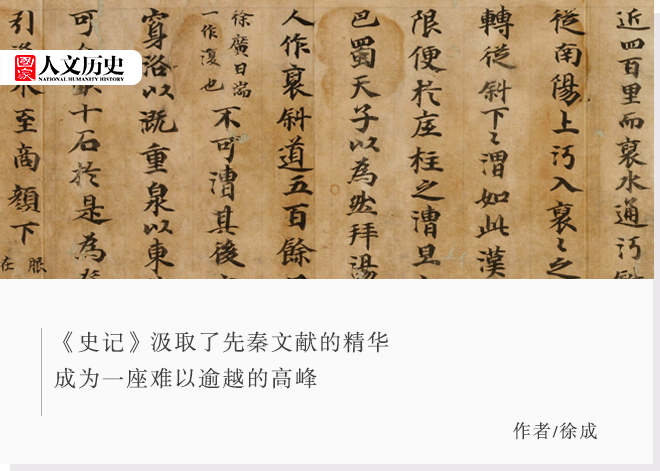 國家人文历史
NATIONAL HUMANITY HISTORY
近四百里而襃水通沔
從南陽上沔入襃〻之
轉從斜下〻渭如此漢
限便於底柱之漕且
巴蜀天子以為然拜湯
人作襃斜道五百餘
徐廣曰湍
一作溲也
不可漕其後
穿洛以溉重泉以東
可十石於是為
引水至商顏下
服
在
《史记》汲取了先秦文献的精华
成为一座难以逾越的高峰
作者/徐成